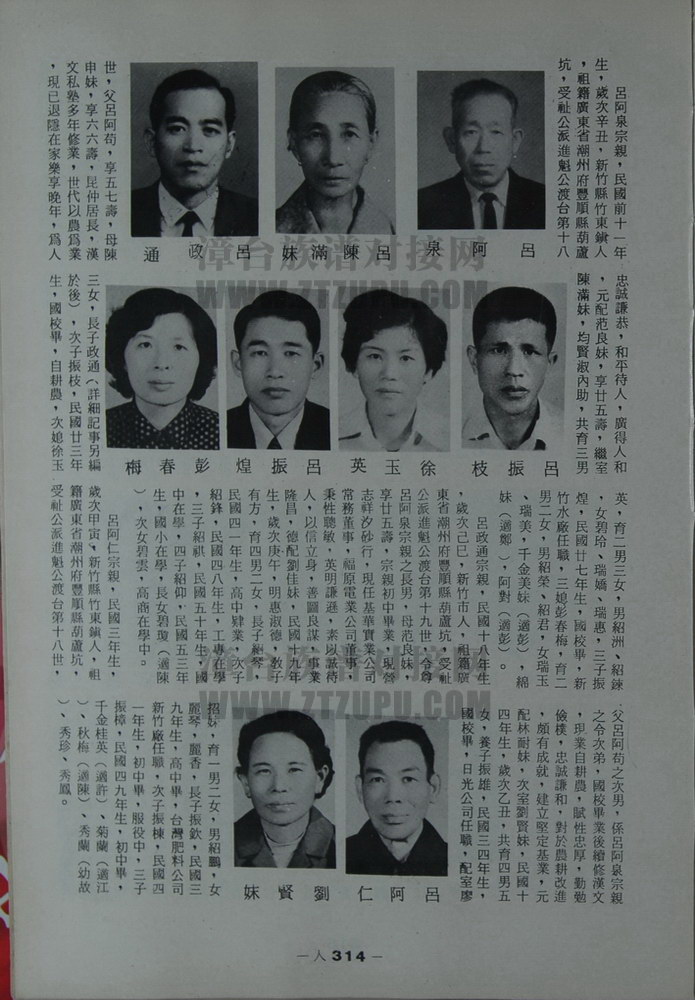 呂阿泉宗親，民國前十一年
生，歲次辛丑，新竹縣竹東鎮人
，祖籍廣東省潮州府豐順縣葫蘆
坑，受祉公派進魁公渡台第十八
呂阿泉
呂陳滿妹
呂政通
世，父呂阿苟，享五七壽，母陳
申妹，享六六壽，昆仲居長，漢
文私塾多年修業，世代以農為業
，現已退隱在家樂享晚年，為人
忠誠謙恭，和平待人，廣得人和
，元配范良妹，享廿五壽，繼室
陳滿妹，均賢淑內助，共育三男
呂振枝
徐玉英
呂振煌
彭春梅
三女，長子政通（詳細記事另編
於後），次子振枝，民國廿三年
生，國校畢，自耕農，次媳徐玉
英，育二男三女，男紹洲、紹錸
，女碧玲、瑞嬌、瑞惠，三子振
煌，民國廿七年生，國校畢，新
竹水廠任職，三媳彭春梅，育二
男二女，男紹榮、紹君，女瑞玉
、瑞美，千金美妹（適彭），綿
妹（適鄭），阿對（適彭）。
呂政通宗親，民國十八年生
，歲次己巳，新竹市人，祖籍廣
東省潮州府豐順縣葫蘆坑，受祉
公派進魁公渡台第十九世，令尊
呂阿泉宗親之長男，母范良妹，
享廿五壽，宗親初中畢業，現營
志祥汐砂行，現任基華實業公司
常務董事，福原電業公司董事，
秉性聰敏，英明謙遜，素以誠待
人，以信立身，善圖良謀，事業
隆昌，德配劉佳妹，民國十九年
生，歲次庚午，明惠淑德，教子
有方，育四男二女，長子紹琴，
民國四一年生，高中肄業，次子
紹鋒，民國四八年生，工專在學
，三子紹祺，民國五十年生，國
中在學，四子紹仰，民國五三年
生，國小在學，長女碧瓊（適陳
），次女碧雲，高商在學中。
呂阿仁宗親，民國三年生，
歲次甲寅，新竹縣竹東鎮人，祖
籍廣東省潮州府豐順縣葫蘆坑，
受祉公派進魁公渡台第十八世，
父呂阿苟之次男，係呂阿泉宗親
之令次弟，國校畢業後續修漢文
，現業自耕農，賦性忠厚，勤勉
儉樸，忠誠謙和，對於農耕改進
，頗有成就，建立堅定基業，元
配林耐妹，次室劉賢妹，民國十
四年生，歲次乙丑，共育四男五
女，養子振雄，民國三四年生，
國校畢，日光公司任職，配室廖
呂阿仁
劉賢妹
招妹，育一男二女，男紹鵬，女
麗琴，麗香，長子振欽，民國三
九年生，高中畢，台灣肥料公司
新竹廠任職，次子振棟，民國四
一年生，初中畢，服役中，三子
振樟，民國四九年生，初中畢，
千金桂英（適許）、菊蘭（適江
）、秋梅（適陳）、秀蘭（幼故
）、秀珍、秀鳳。
—人 314—
漳台族谱对接网
WWW.ZTZUPU.COM
漳台族谱对接网
WWW.ZTZUPU.COM